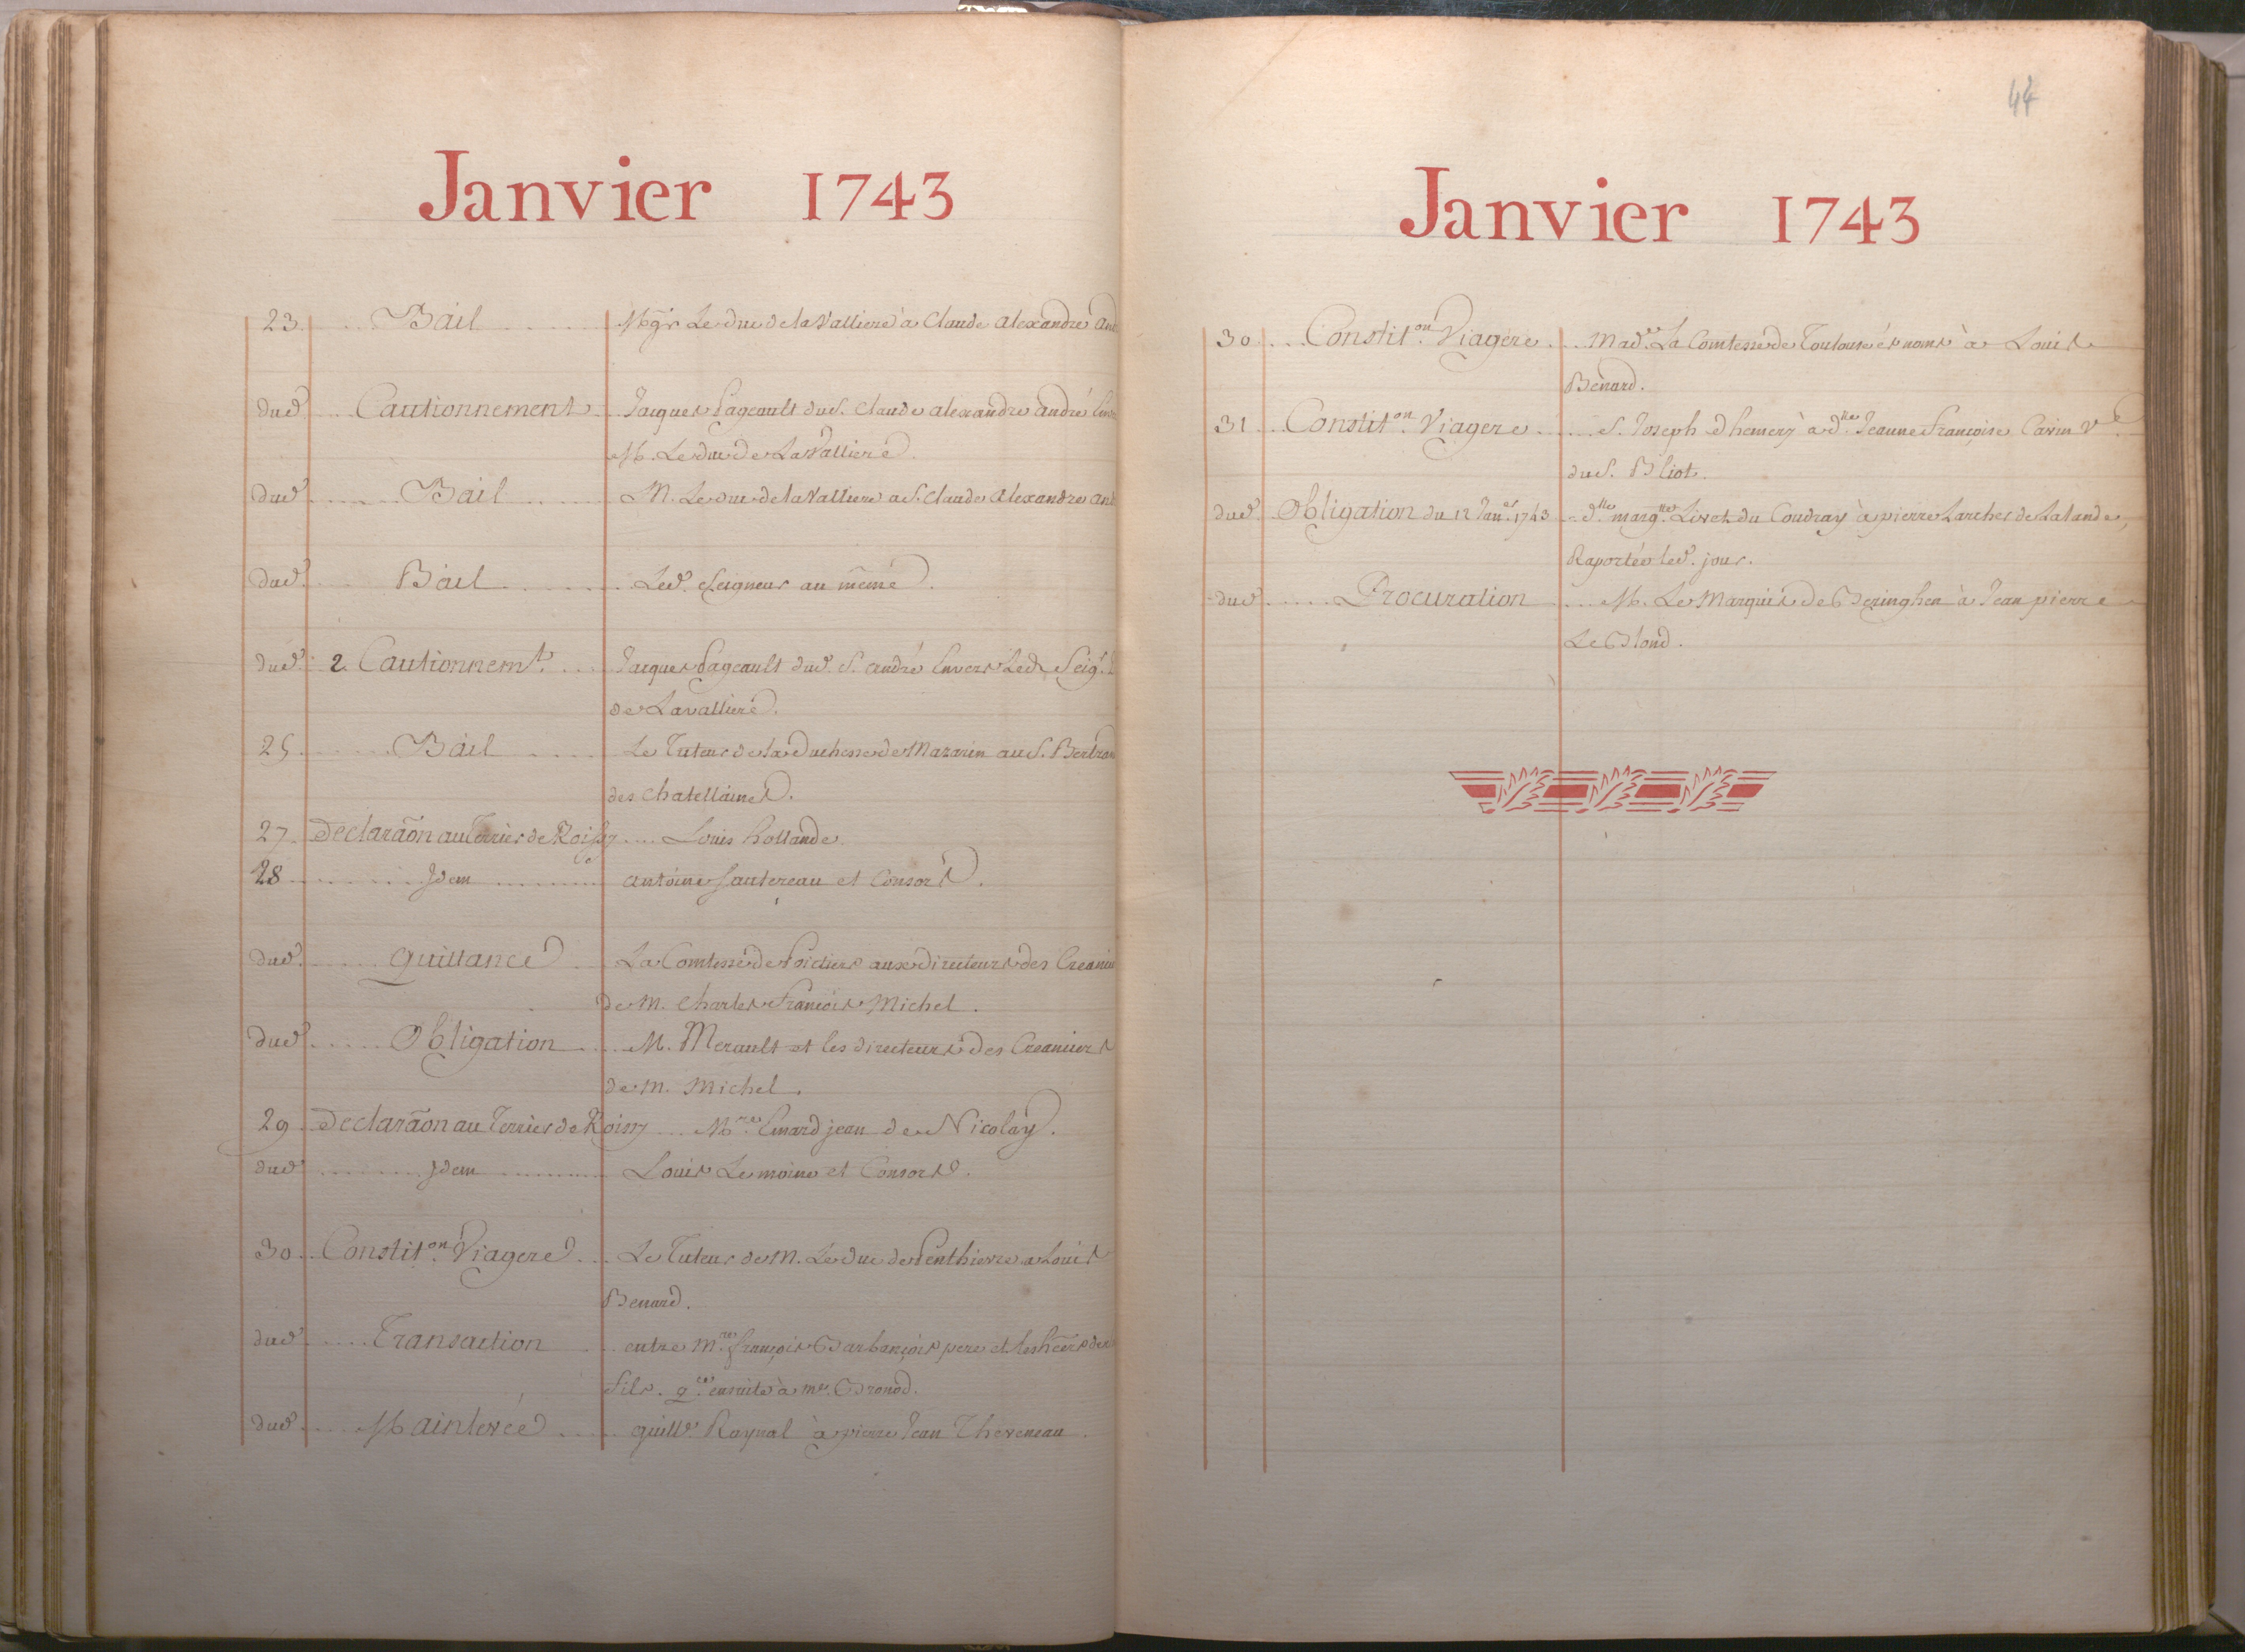 Janvier 1743
23 Bail Mgr. Le duc de la Valliere a Claude alexandre And
dud. Cautionnement Jacques Pageault du S. Claude alexandre andré Env
M. Le duc de La Valliere.
dud. Bail M. Le duc de la Valliere a S. Claude Alexandre And
dud. Bail Led. Seigneur au même.
dud. 2 Cautionnemt. Jacques Pageault dud. S. andré Envers Led. Seigr.
de Lavalliere.
25 Bail Le Tuteur de la Duchesse de Mazarin au S. Bertrand
des chatellaines.
27 Declaraõn au Terrier de Roissy Louis hollande
28 Idem antoine Sautereau et Consors.
dud. Quittance La Comtesse de Poictiers aux directeurs des Creanci
de M. Charles François Michel.
dud. Obligation M. Merault et les directeurs des Creanciers
de M. Michel.
29 Declaraõn au Terrier de Roissy Mre. Emard jean de Nicolay.
dud. Idem Louis Le moine et Consors.
30 Constiton. Viagere Le Tuteur de M. Le Duc de Penthievre a Louis
Benard.
dud. Transaction entre Mre. françois Barbançois pere et les hers de
fils. qce. ensuite à Me. Bronod.
dud. Mainlevée Guille. Raynal à pierre Jean Theveneau.
44
Janvier 1743
30 Constiton. Viagere Made. La Comtesse de Toulouse és noms à Louis
Bénard.
31 Constiton. Viagere S. Joseph Dhemery à dlle. Jeanne Françoise Cavin Ve.
du S. Bliot.
dud. Obligation du 12 Janer. 1743 dlle. margte. Livet du Coudray à pierre Larcher de Lalande,
Raportée led. jour.
dud. Procuration M. Le Marquis de Beringhen à Jean pierre
Le Blond.